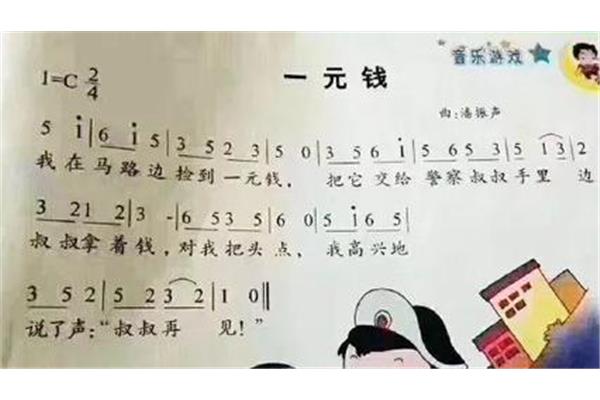 音乐游戏
1=C 2/4
一元钱
曲:潘振声
5 i|6 i 5|3 5 2 3|5 0|3 5 6 i|5 6 5 3|5 1 3|2
我在马路边捡到一元钱，把它交给警察叔叔手里 边
3 2 1 2|3 -|6 5 3 5|6 0|5 i 6 5|
叔叔拿着钱，对我把头点，我高兴地
3 5 2|5 2 3 2|1 0‖
说了声:“叔叔再 见!”